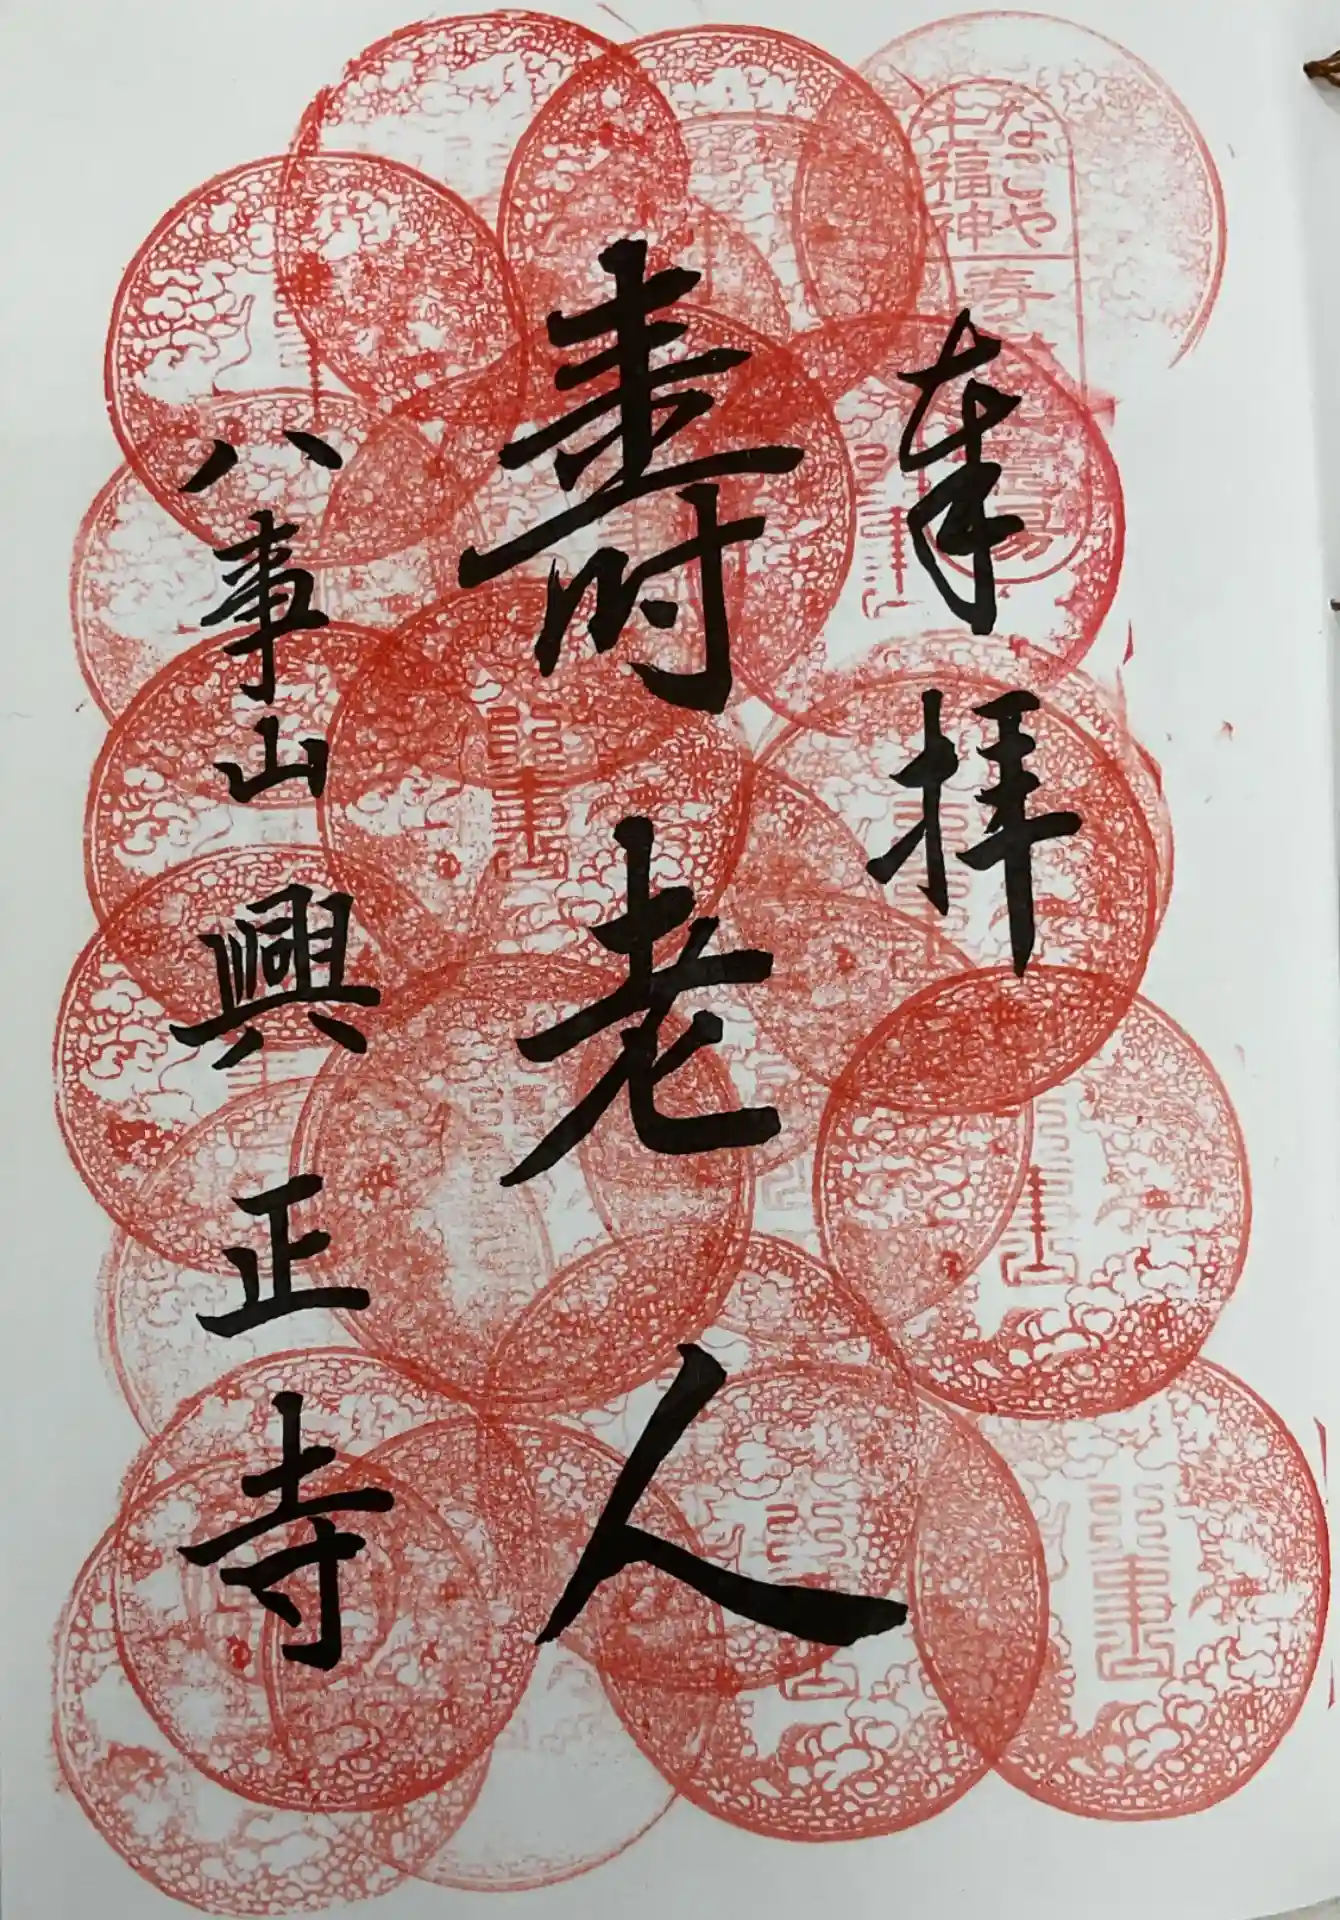 奉拝
寿老人
八事山興正寺
なごや
七福神
寿